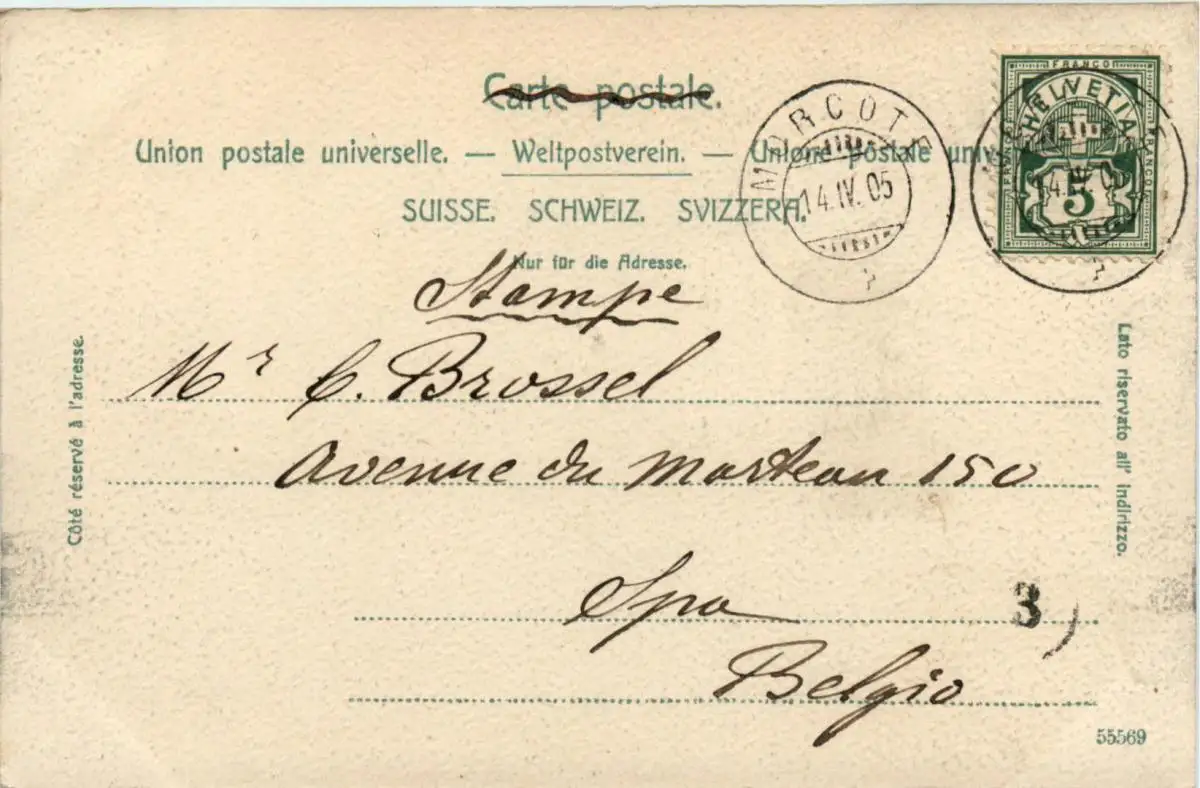 Carte postale.
Union postale universelle. — Weltpostverein. — Unione postale univ
SUISSE. SCHWEIZ. SVIZZERA.
Nur für die Adresse.
MORCOTE
14.IV.05
FRANCO
HELVETIA
FRANCO
FRANCO
5
14.IV.0
Stampe
Mr C. Brossel
Avenue du Marteau 150
Spa
Belgio
3
Côté réservé à l'adresse.
Lato riservato all' indirizzo.
55569